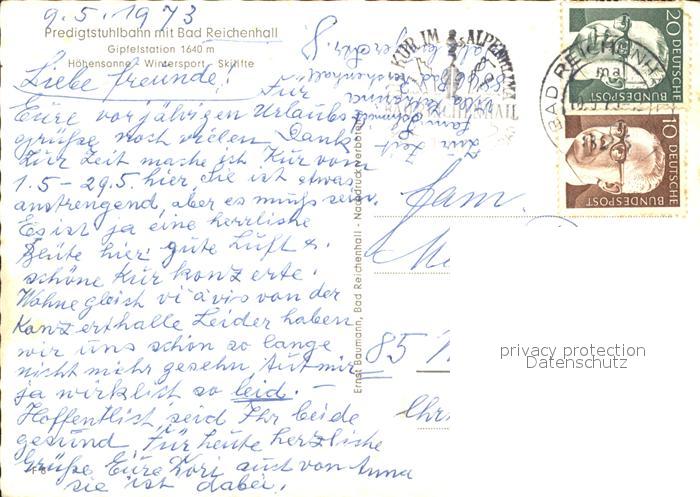 9.5.1973
Predigtstuhlbahn mit Bad Reichenhall
Gipfelstation 1640 m
Höhensonne Wintersport - Skilifte
Liebe Freunde! Für
Eure vorjährigen Urlaubs-
grüße noch vielen Dank
Zur Zeit mache ich Kur vom
1.5 - 29.5. hier, Sie ist etwas
anstrengend, aber es muß sein.
Es ist ja eine herrliche
heute hier: gute Luft &.
schöne Kurkonzerte.
Wohne gleich vi á vis von der
Konzerthalle Leider haben
wir uns schon so lange
nicht mehr gesehn, tut mir
ja wirklich so leid. -
Hoffentlich seid Ihr beide
gesund Für heute herzliche
Grüße Eure Dori auch von Anna
sie ist dabei.
Zur Zeit
KUR IM ALPENKLIMA
BAD REICHENHALL
BAD REICHENHALL
ma
20 DEUTSCHE BUNDESPOST
10 DEUTSCHE BUNDESPOST
Ernst Baumann, Bad Reichenhall - Nachdruck verboten
Fam.
85
privacy protection
Datenschutz